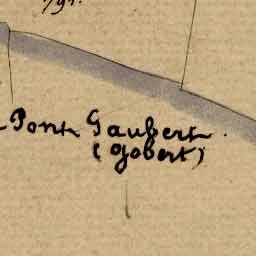 Pont Gaubert.
(gobert)